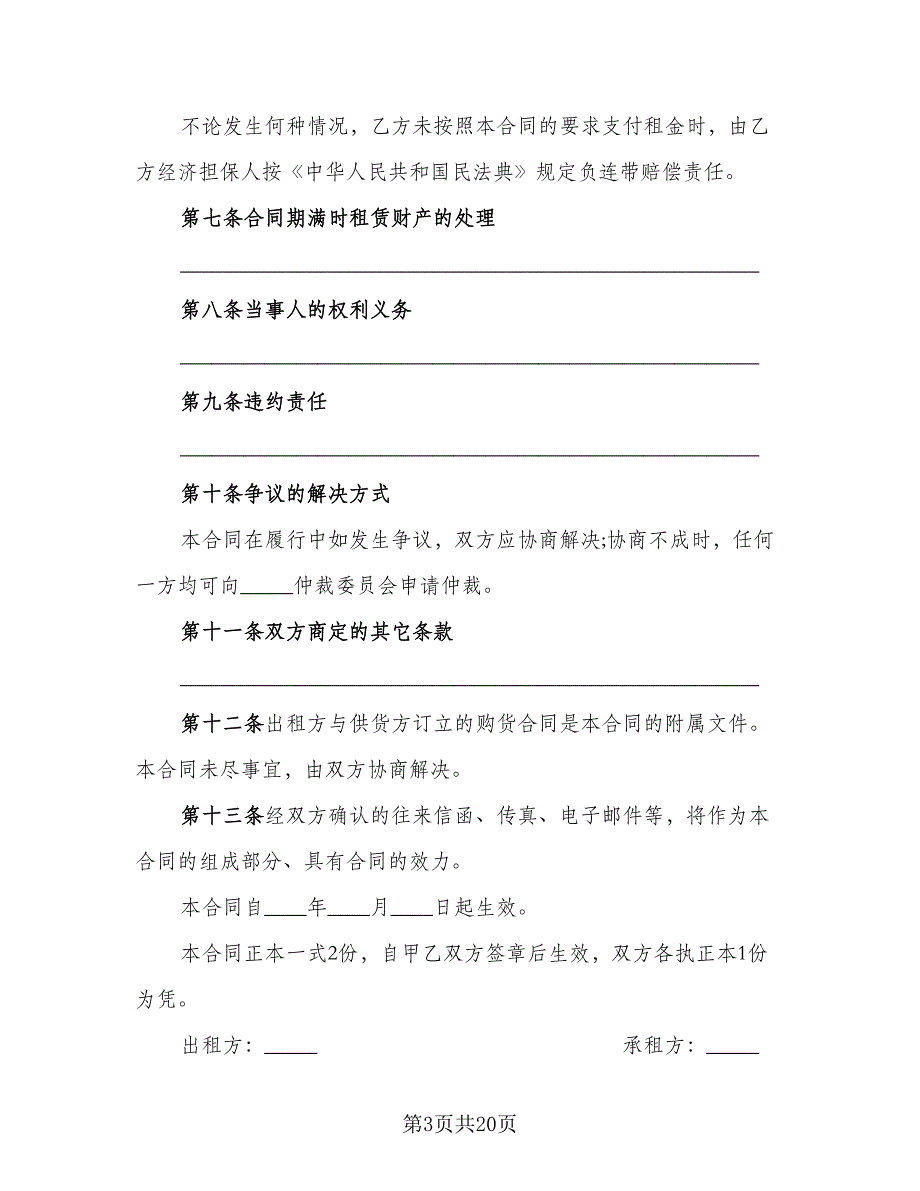 不论发生何种情况，乙方未按照本合同的要求支付租金时，由乙
方经济担保人按《中华人民共和国民法典》规定负连带赔偿责任。
第七条合同期满时租赁财产的处理
_______________________________________________________
第八条当事人的权利义务
_______________________________________________________
第九条违约责任
_______________________________________________________
第十条争议的解决方式
本合同在履行中如发生争议，双方应协商解决;协商不成时，任何
一方均可向_____仲裁委员会申请仲裁。
第十一条双方商定的其它条款
_______________________________________________________
第十二条出租方与供货方订立的购货合同是本合同的附属文件。
本合同未尽事宜，由双方协商解决。
第十三条经双方确认的往来信函、传真、电子邮件等，将作为本
合同的组成部分、具有合同的效力。
本合同自____年____月____日起生效。
本合同正本一式2份，自甲乙双方签章后生效，双方各执正本1份
为凭。
出租方：_____ 承租方：_____
第3页共20页